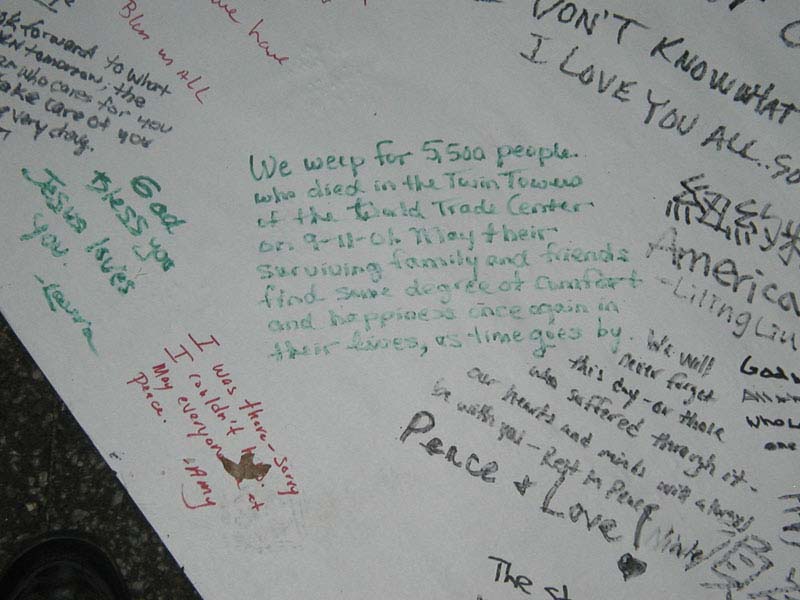 Bless us ALL
we have
look forward to what
tomorrow; the
who cares for you
take care of you
every day.
God
Bless you
Jesus loves
you.
-Laura
DON'T KNOW WHAT
I LOVE YOU ALL..
We weep for 5,500 people
who died in the Twin Towers
of the World Trade Center
on 9-11-01. May their
surviving family and friends
find some degree of comfort
and happiness once again in
their lives, as time goes by.
紐約
America
-Liling Liu
I was there-sorry
I couldn't
May everyone at
peace.
-Amy
We will
never forget
this day-or those
who suffered through it-
our hearts and minds will always
be with you - Rest in Peace
Peace & Love! ♥
God
who
one
The